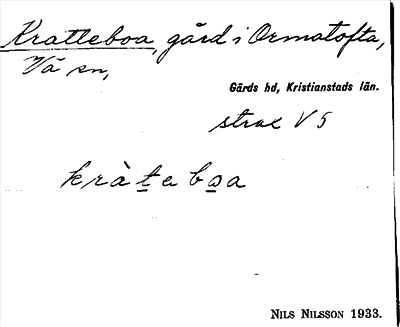 Kratteboa, gård i Ormatofta,
Vä sn,
Gärds hd, Kristianstads län.
strax V 5
kràtaboa
NILS NILSSON 1933.